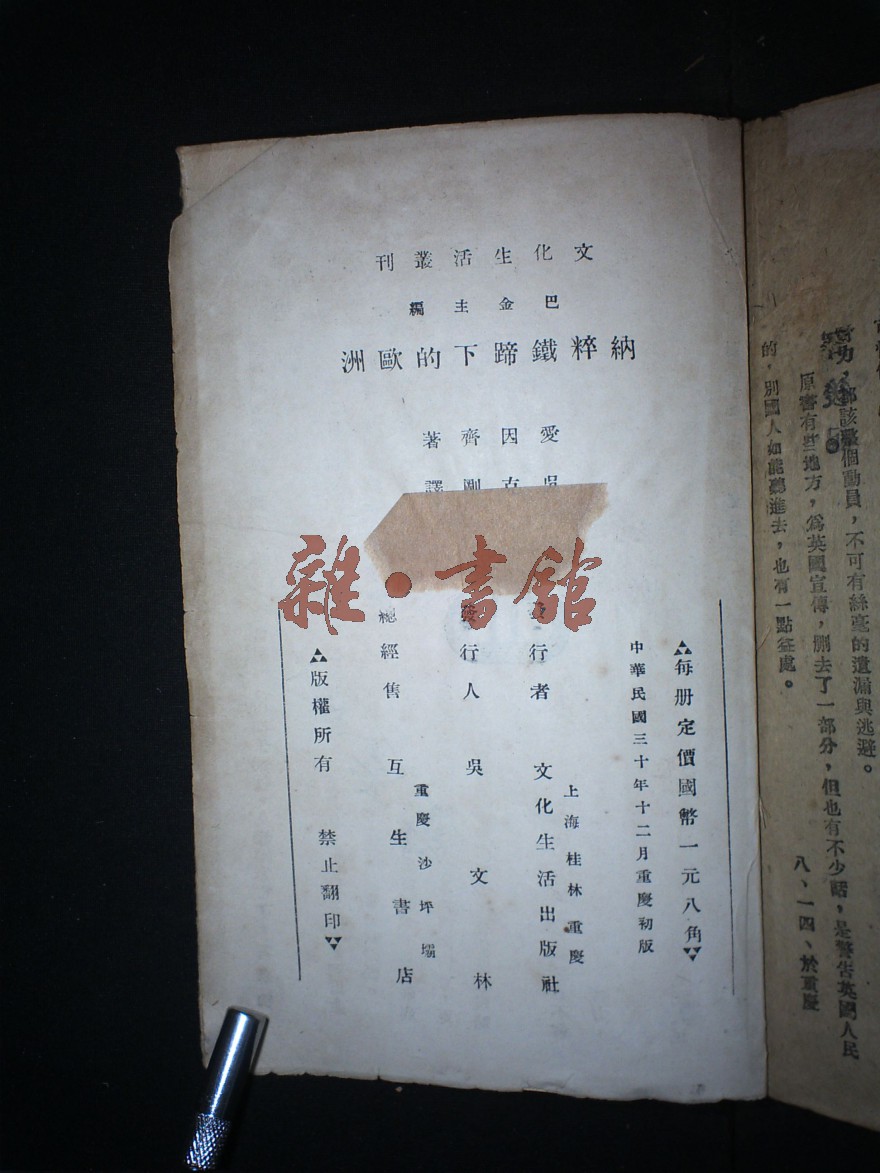 文化生活叢刊
巴金主編
納粹鐵蹄下的歐洲
愛因齊著
吳 剛譯
每册定價國幣一元八角
中華民國三十年十二月重慶初版
上海桂林重慶
行者 文化生活出版社
發行人 吳文林
重慶沙坪壩
總經售 互生書店
版權所有 禁止翻印
雜·書舘
該整個動員，不可有絲毫的遺漏與逃避。
原書有些地方，爲英國宣傳，删去了一部分，但也有不少話，是警告英國人民
的，別國人如能聽進去，也有一點益處。
八、一四、於重慶